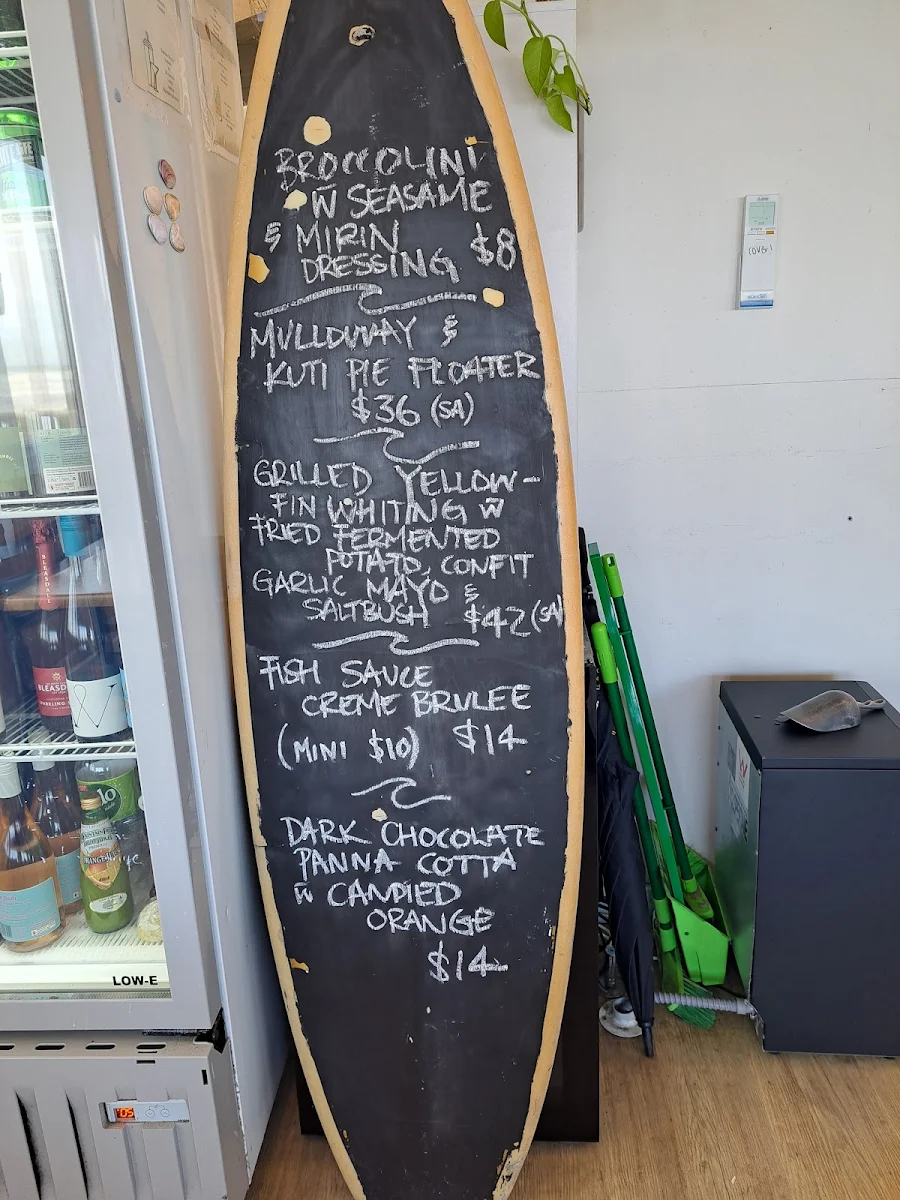 BROCCOLINI
W̄ SEASAME
& MIRIN $8
DRESSING
MULLOWAY &
KUTI PIE FLOATER
$36 (SA)
GRILLED YELLOW-
FIN WHITING W̄
FRIED FERMENTED
POTATO, CONFIT
GARLIC MAYO &
SALTBUSH $42 (SA)
FISH SAUCE
CREME BRULEE
(MINI $10) $14
DARK CHOCOLATE
PANNA COTTA
W̄ CANDIED
ORANGE
$14
LOW-E
BLEASDALE